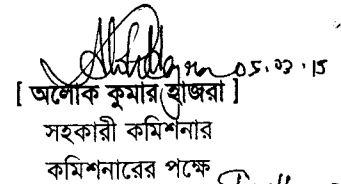 05.03.15
[ অলোক কুমার হাজরা ]
সহকারী কমিশনার
কমিশনারের পক্ষে